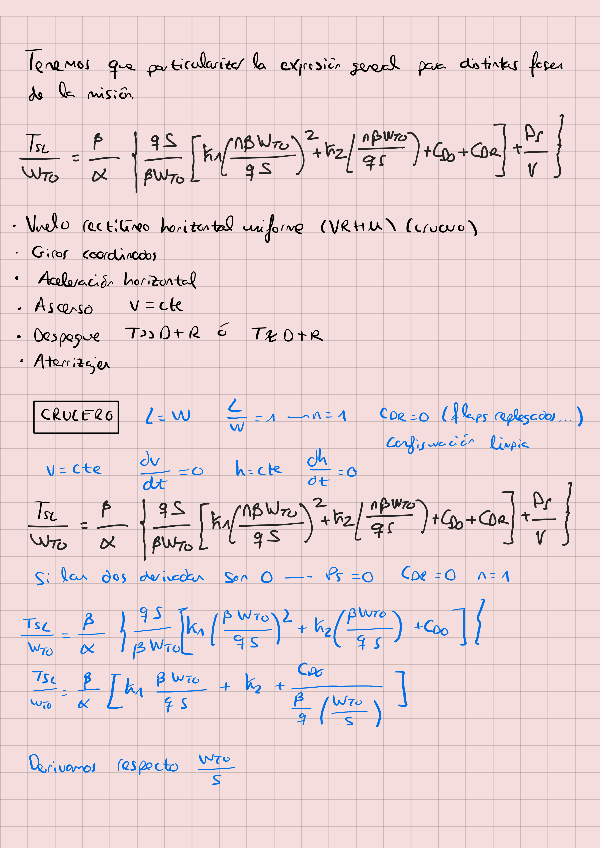 Tenemos que particularizar la expresión general para distintas fases
de la misión
T_SL/W_TO = β/α { qS/βW_TO [ k1 (nβW_TO/qS)^2 + k2 (nβW_TO/qS) + C_D0 + C_DR ] + Ps/V }
· Vuelo rectilíneo horizontal uniforme (VRHU) (crucero)
· Giros coordinados
· Aceleración horizontal
· Ascenso V = cte
· Despegue T>>D+R ó T≈D+R
· Aterrizajes
CRUCERO L=W L/W = 1 — n=1 C_DR=0 (flaps replegados...)
Configuración limpia
V = cte dv/dt = 0 h=cte dh/dt = 0
T_SL/W_TO = β/α { qS/βW_TO [ k1 (nβW_TO/qS)^2 + k2 (nβW_TO/qS) + C_D0 + C_DR ] + Ps/V }
Si las dos derivadas son 0 — Ps = 0 C_DR = 0 n=1
T_SL/W_TO = β/α { qS/βW_TO [ k1 (βW_TO/qS)^2 + k2 (βW_TO/qS) + C_D0 ] }
T_SL/W_TO = β/α [ k1 βW_TO/qS + k2 + C_D0/(β/q (W_TO/S)) ]
Derivamos respecto W_TO/S